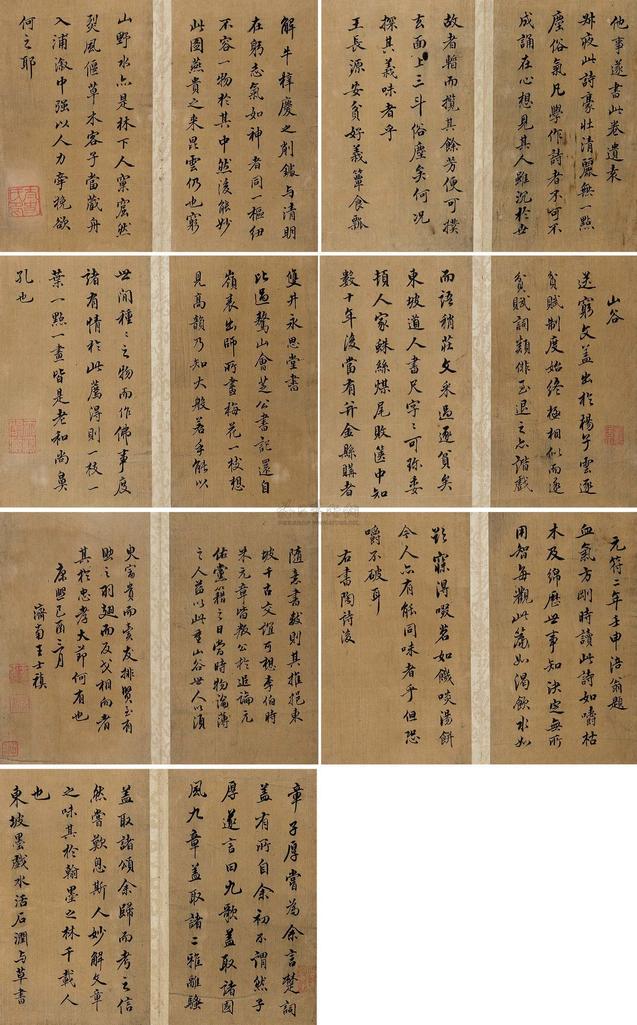 他事遂書此卷遺袁
姊夜此詩豪壯清麗無一點
塵俗氣凡學作詩者不可不
成誦在心想見其人雖沉於世
故者暫而攬其餘芳便可撲
去面上三斗俗塵矣何況
探其義味者乎
王長源安貧好義簞食瓢
解牛梓慶之削鐻與清明
在躬志氣如神者同一樞紐
不容一物於其中然後能妙
此圖燕貴之來昆雲仍也窮
山野水亦是林下人窠窟然
烈風偃草木客子當藏舟
入浦漵中強以人力牽挽欲
何之耶
山谷
送窮文蓋出於楊子雲逐
貧賦制度始終極相似而逐
貧賦詞類俳至退之亦諧戲
而語稍莊文采過逐貧矣
東坡道人書尺字々可珍委
頓人家蛛絲煤尾敗篋中知
數十年後當有并金縣購者
雙井永思堂書
比過鷲山會芝公書記還自
嶺表出師所畫梅花一枝想
見高韻乃知大般若手能以
世間種々之物而作佛事度
諸有情於此薦得則一枝一
葉一點一畫皆是老和尚鼻
孔也
元符二年壬申涪翁題
血氣方剛時讀此詩如嚼枯
木及綿歷世事知決定無所
用智每觀此篇如渴飲水如
欲寐得啜茗如饑啖湯餅
今人亦有能同味者乎但恐
嚼不破耳
右書陶詩後
隨意書數則其推挹東
坡千古交誼可想李伯時
米元章皆敬公於追論元
佑黨籍之日當時物論薄
之人益以此重山谷世人以須
臾富貴而賣友排賢至有
助之羽翅而反戈相向者
其於忠孝大節何有也
康熙己酉二月
濟南王士禛
章子厚嘗為余言楚詞
蓋有所自余初不謂然子
厚遂言曰九歌蓋取諸國
風九章蓋取諸二雅離騷
蓋取諸頌余歸而考之信
然嘗歎息斯人妙解文章
之味其於翰墨之林千載人
也
東坡墨戲水活石潤與草書